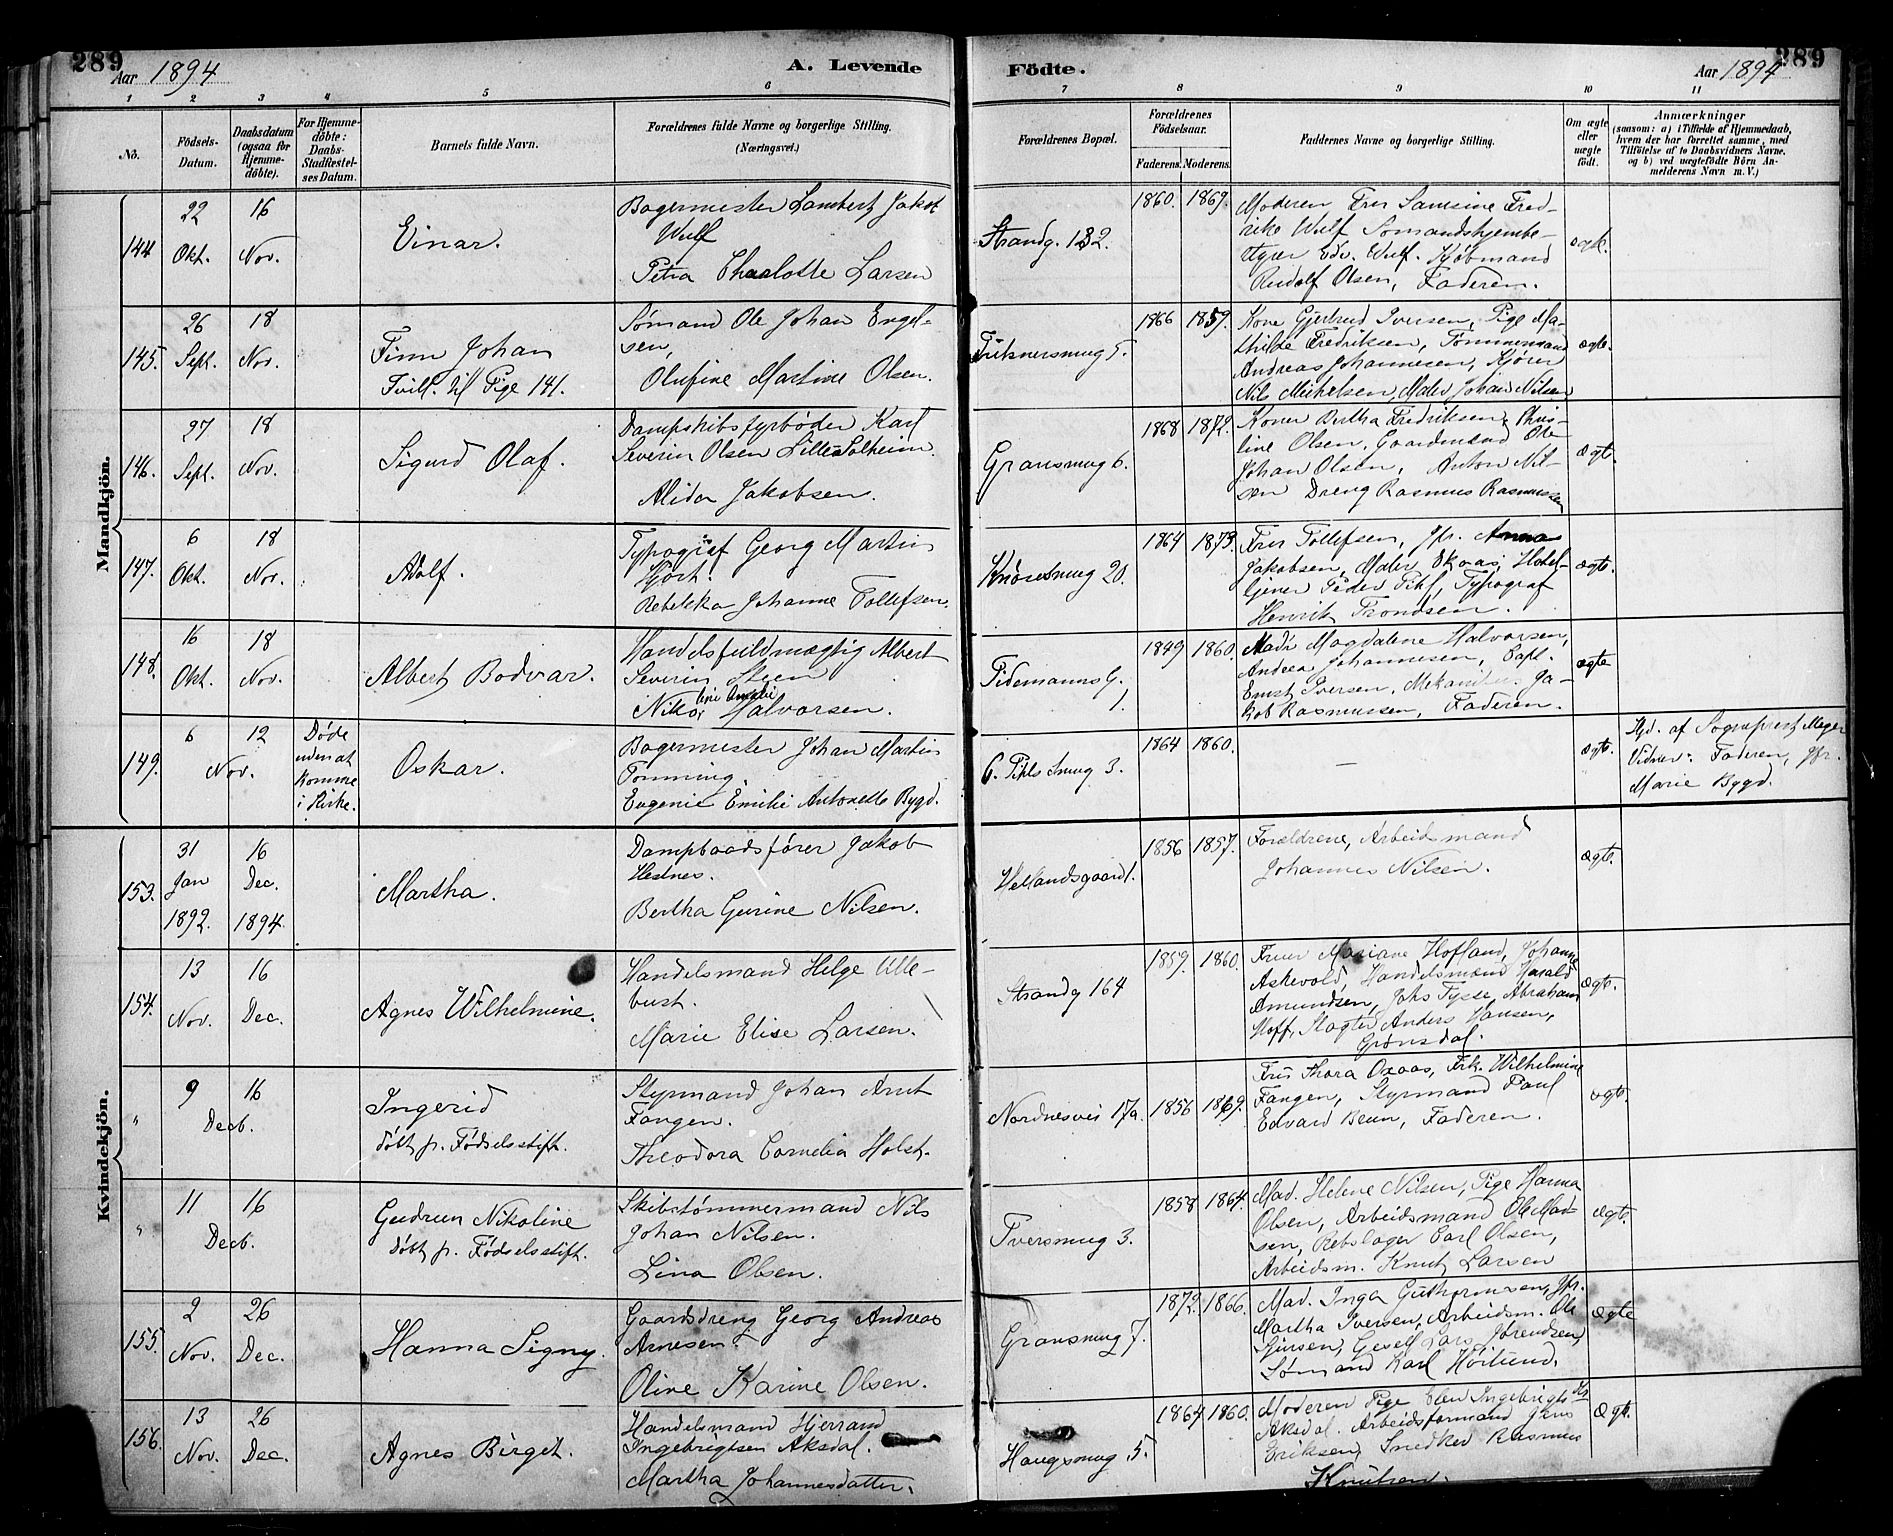 289
Aar 1894
A. Levende
Födte.
Aar 1894
289
1 2 3 4 5 6 7 8 9 10 11
No.
Födsels-
Datum.
Daabsdatum
(ogsaa for
Hjemme-
döbte).
For Hjemme-
döbte:
Daabs-
Stadfæstel-
ses Datum.
Barnets fulde Navn.
Forældrenes fulde Navne og borgerlige Stilling.
(Næringsvei.)
Forældrenes Bopæl.
Forældrenes
Födselsaar.
Faderens. Moderens.
Faddernes Navne og borgerlige Stilling.
Om ægte
eller
uægte
födt.
Anmærkninger
(saasom: a) i Tilfælde af Hjemmedaab,
hvem der har forrettet samme, med
Tilföielse af to Daabsvidners Navne,
og b) ved uægtefödte Börn An-
melderens Navn m. V.)
Mandkjön.
144
22
Okt.
16
Nov.
Einar.
Bagermester Lambert Jakob
Wulf
Petra Charlotte Larsen
Strandg. 182.
1860. 1869.
Moderen Fru Samsine Fred-
rike Wulf Sømandshjembe-
styrer Edv. Wulf. Kjøbmand
Rudolf Olsen, Faderen.
ægte.
145.
26
Sept.
18
Nov.
Finn Johan
Tvill. til Pige 141.
Sømand Ole Johan Engel-
sen,
Olufine Martine Olsen.
1866 1859.
Kone Gjertrud Iversen, Pige Ma-
thilde Fredriksen, Tømmermand
Andreas Johannesen, Kjører
Nils Mickelsen, Maler Johan Nilsen
ægte.
146.
27
Sept.
18
Nov.
Sigurd Olaf.
Dampskibsfyrbøder Karl
Severin Olsen Lille Solheim.
Alida Jakobsen.
Gransmug 6.
1868 1872.
Koner Bertha Fredriksen, Chris-
tine Olsen, Gaardmand Ole
Johan Olsen, Anton Nil-
sen Dreng Rasmus Rasmussen
ægte.
147.
6
Okt.
18
Nov.
Adolf.
Typograf Georg Martin
Hjort.
Rebekka Johanne Tollefsen.
Knøsesmug 20.
1864 1873.
Fru Tollefsen, Jfr. Anna
Jakobsen, Maler Skaas, Hotel-
tjener Peder Pihl, Typograf
Henrik Trondsen.
ægte.
148.
16
Okt.
18
Nov.
Albert Bodvar.
Handelsfuldmægtig Albert
Severin Steen
Nikoline Amalie Halvorsen.
Tidemanns G.
1.
1849 1860.
Madr Magdalene Halvorsen,
Andrea Johannesen, Capt.
Ernst Iversen, Mekaniker Ja-
kob Rasmussen, Faderen.
ægte
149.
6
12
Nov.
Døde
uden at
komme
i Kirke.
Oskar.
Bagermester Johan Martin
Tonning.
Eugenie Emilie Antonette Bygd.
C. Pihls Smug 3.
1864 1860.
—
ægte.
Hjd. af Sogneprest Meyer
Vidner: Faderen, Jfr.
Marie Bygd.
Kvindekjön.
153.
31
Jan
1892.
16
Dec.
1894.
Martha.
Dampbaadsfører Jakob
Hesnes.
Bertha Gurine Nilsen.
Hellandsgaard 1.
1856 1857.
Forældrene, Arbeidsmand
Johannes Nilsen.
ægte.
154.
13
Nov.
16
Dec.
Agnes Wilhelmine.
Handelsmand Helge Ulle-
bust.
Marie Elise Larsen.
Strandg 164
1859. 1860.
Fruer Mariane Hofland, Johanne
Askevold, Handelsmænd Harald
Amundsen, Johs Tysse, Abraham
Hoff, Slagter Anders Hansen,
Grønsdal.
ægte.
"
9
16
Decb.
Ingerid
døbt p. Fødselsstift.
Styrmand Johan Arnt
Fangen.
Theodora Cornelia Holst.
Nordnesvei 17a.
1856 1869.
Fru Thora Oxaas, Frk. Wilhelmine
Fangen, Styrmand Paul
Edvard Beun, Faderen.
ægte.
"
11
16
Decb.
Gudrun Nikoline
døbt p. Fødselsstift.
Skibstømmermand Nils
Johan Nilsen.
Lina Olsen.
Tversmug 3.
1858 1864.
Mad. Helene Nilsen, Pige Hanna
Olsen, Arbeidsmand Ole Mad-
sen, Rebslager Carl Olsen,
Arbeidsm. Knut Larsen
ægte.
155.
2
Nov.
26
Dec.
Hanna Signy.
Gaardsdreng Georg Andreas
Arnesen.
Oline Karine Olsen.
Gransmug 7.
1872. 1866.
Mad. Inga Guthormsen, Jfr.
Martha Iversen, Arbeidsm. Ole
Sjursen, Gesell Lars Jørendsen,
Sømand Karl Høilund.
ægte
156.
13
Nov.
26
Dec.
Agnes Birget.
Handelsmand Hjerrand
Ingebrigtsen Aksdal.
Martha Johannesdatter.
Haugsmug 5.
1864 1860.
Moderen, Pige Elen Ingebrigtsdtr
Aksdal. Arbeidsformand Jens
Eriksen, Snedker Rasmus
Knutsen.
Ægte.